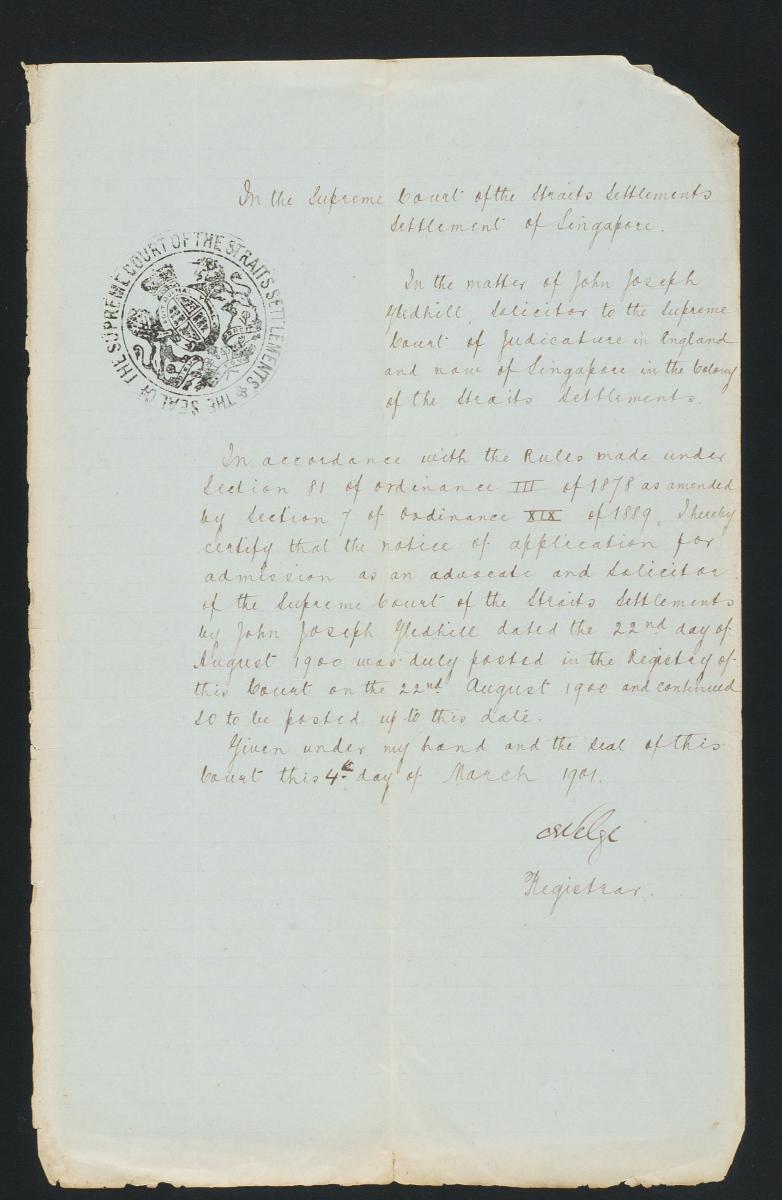 In the Supreme Court of the Straits Settlements
Settlement of Singapore.
THE SEAL OF THE SUPREME COURT OF THE STRAITS SETTLEMENTS &
In the matter of John Joseph
Gledhill, Solicitor to the Supreme
Court of Judicature in England
and now of Singapore in the Colony
of the Straits Settlements.
In accordance with the Rules made under
Section 81 of Ordinance III of 1878 as amended
by Section 7 of Ordinance XIX of 1889, I hereby
certify that the notice of application for
admission as an advocate and Solicitor
of the Supreme Court of the Straits Settlements
by John Joseph Gledhill dated the 22nd day of
August 1900 was duly posted in the Registry of
this Court on the 22nd August 1900 and continued
so to be posted up to this date.
Given under my hand and the seal of this
Court this 4th day of March 1901.
Velge
Registrar.